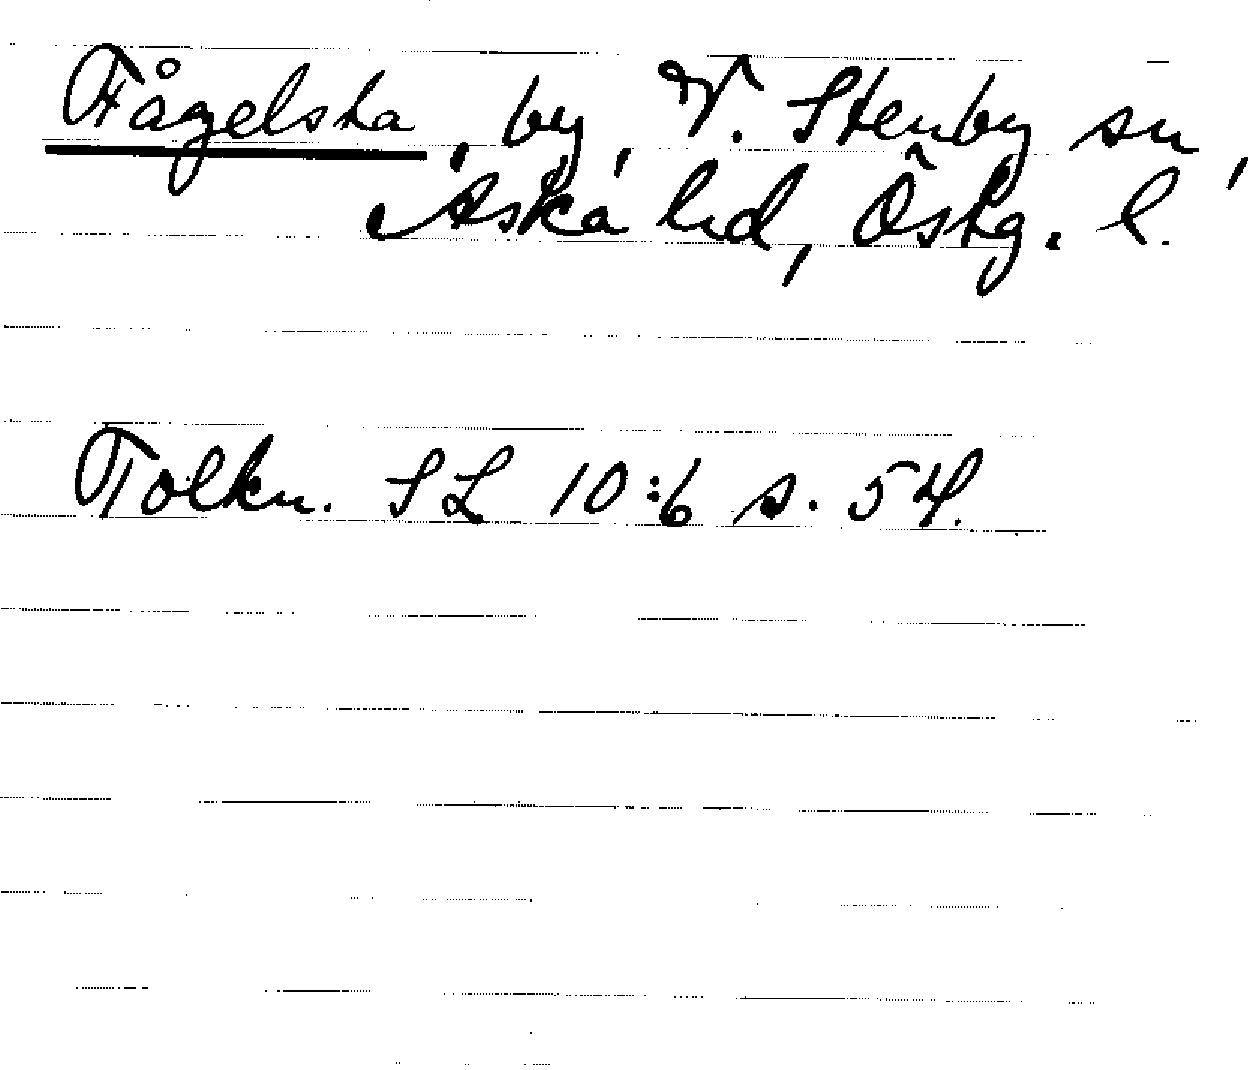 Fågelsta, by, V. Stenby sn,
Aska hd, Östg. l.
Tolkn. SL 10:6 s. 54.